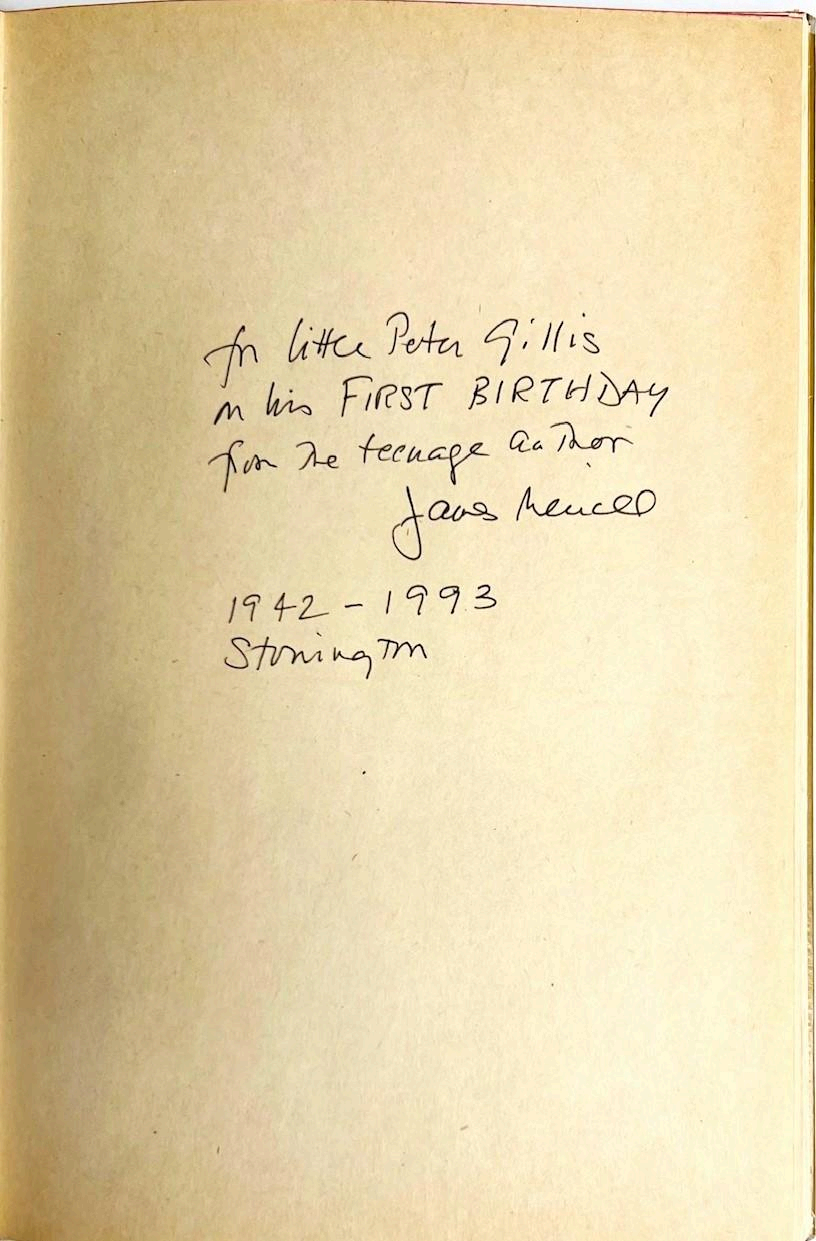 for little Peter Gillis
on his FIRST BIRTHDAY
from the teenage author
James Merrill
1942 - 1993
Stonington